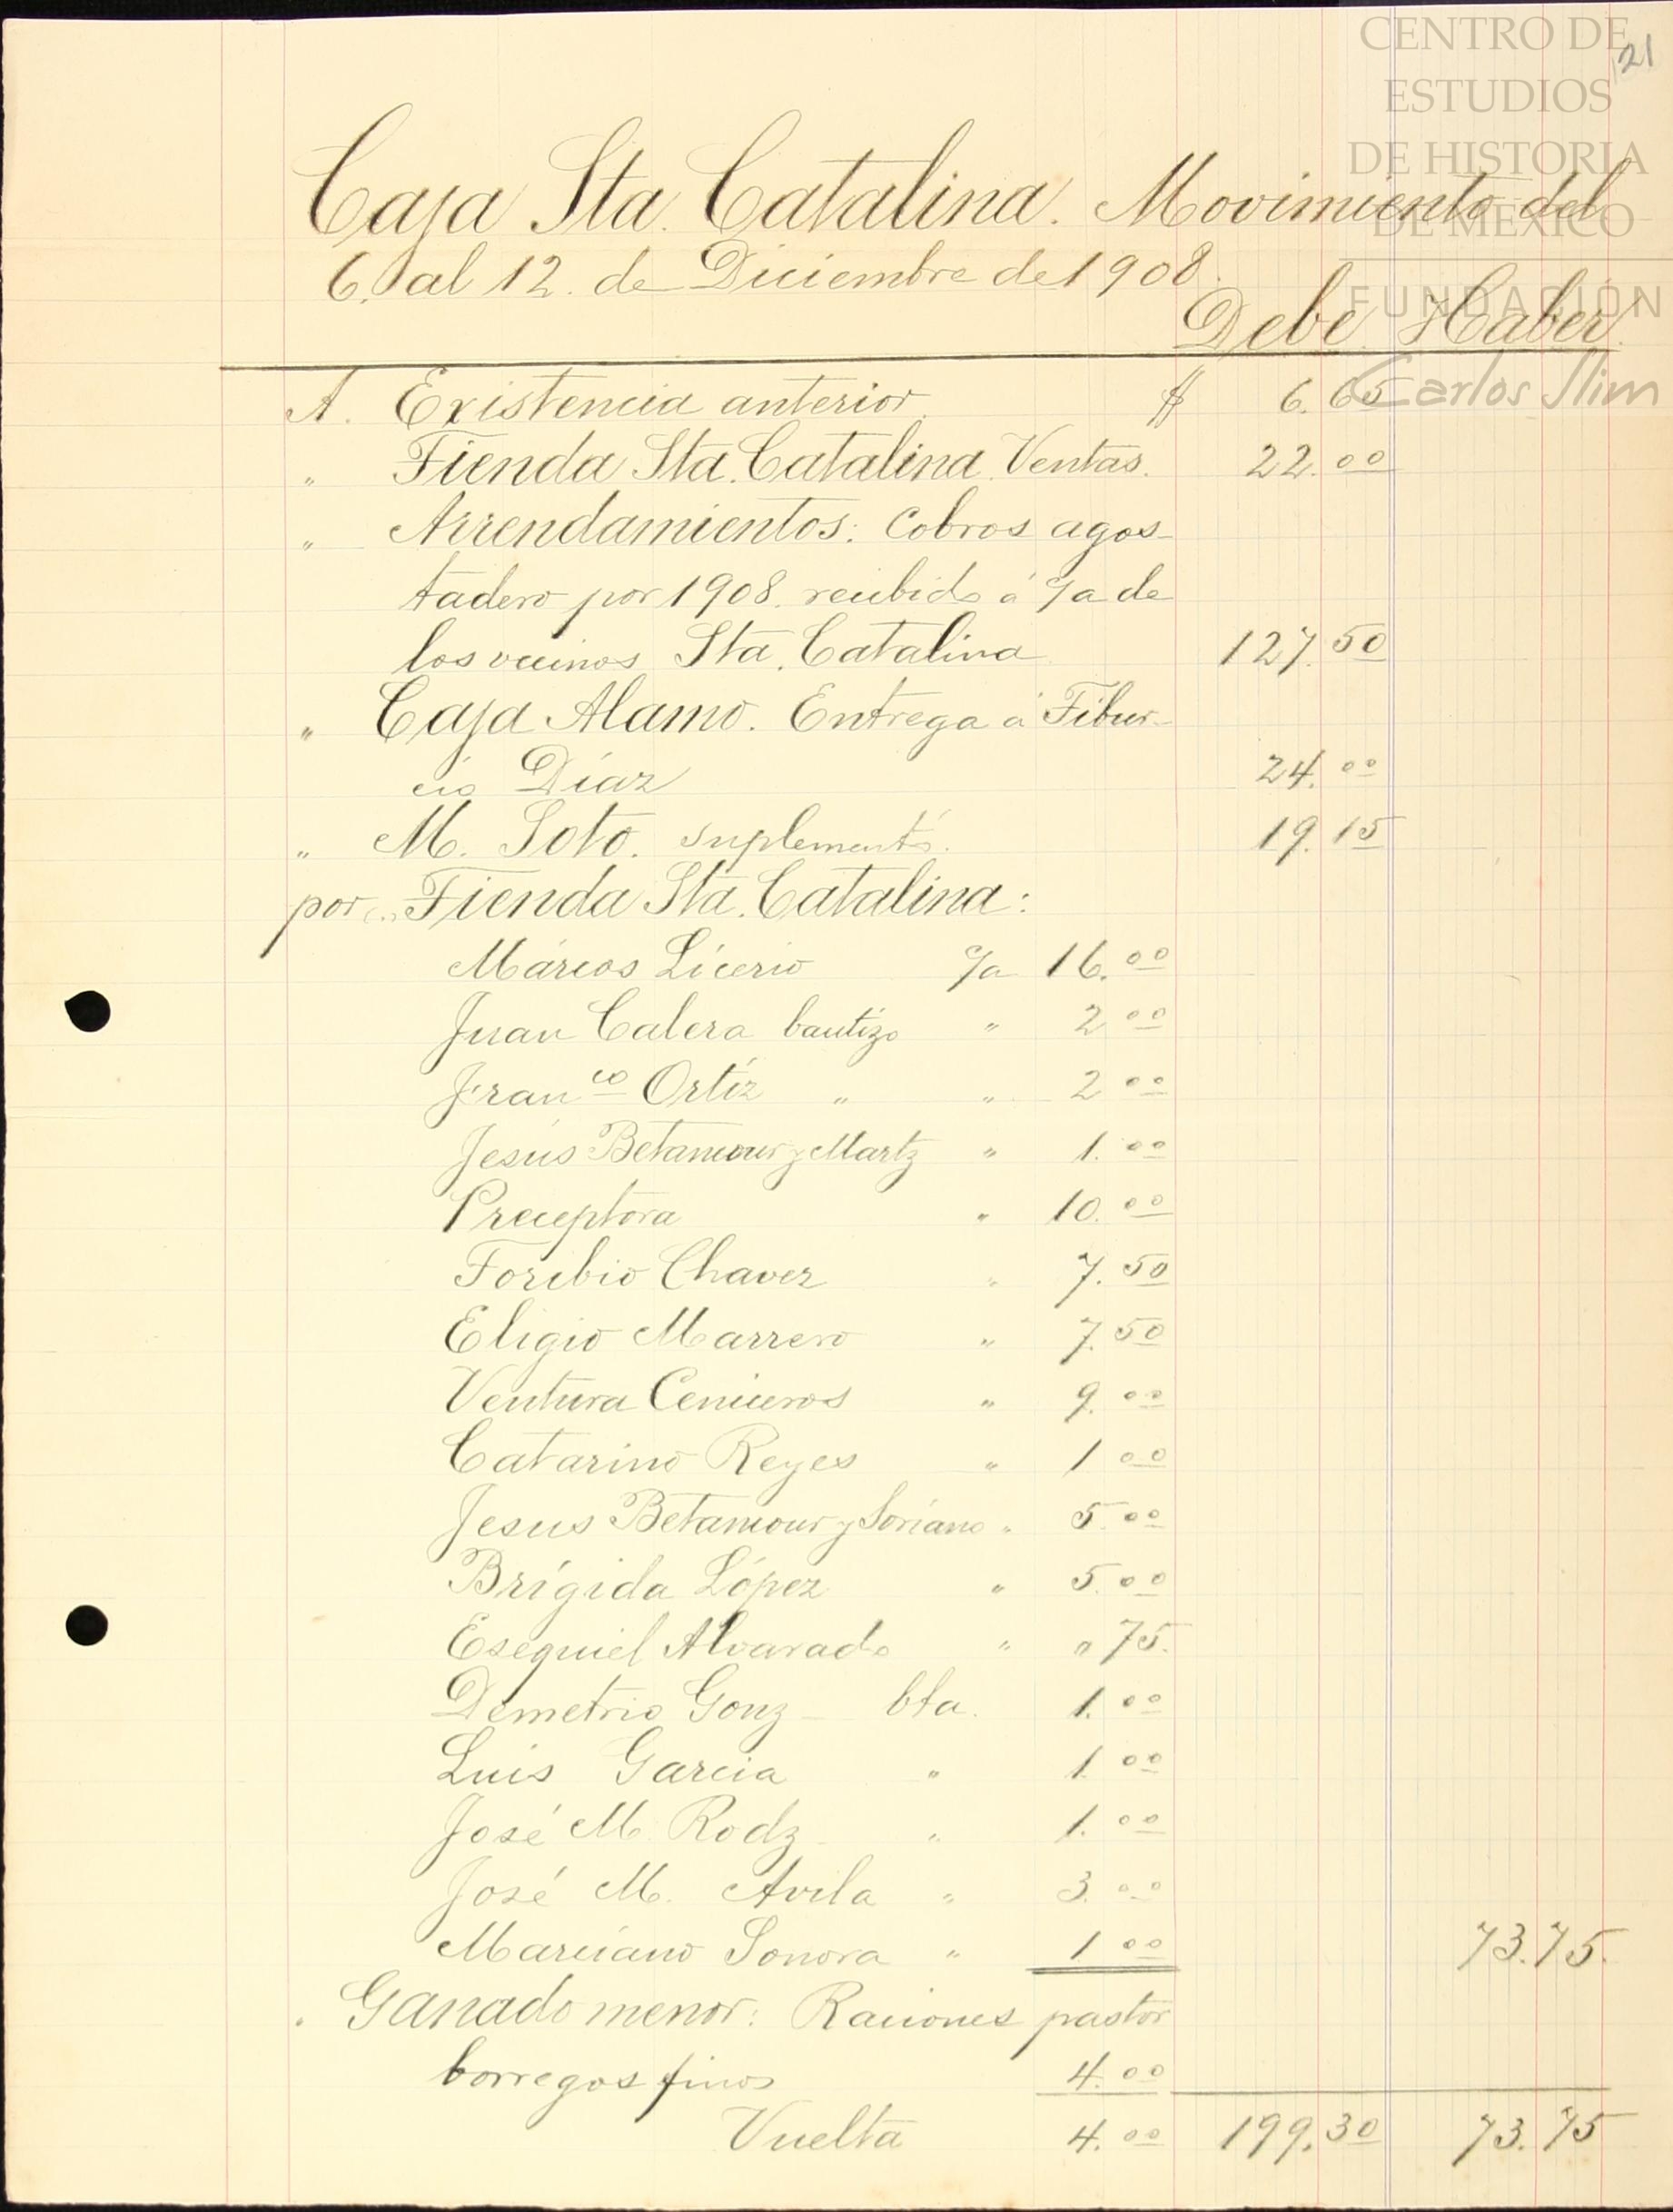 CENTRO DE
ESTUDIOS
DE HISTORIA
DE MÉXICO
FUNDACIÓN
Carlos Slim
21
Caja Sta. Catalina. Movimiento del
6. al 12. de Diciembre de 1908.
Debe. Haber.
A. Existencia anterior. $ 6.65
" Tienda Sta. Catalina. Ventas. 22.00
" Arrendamientos: Cobros agos-
tadero por 1908. recibido á c/a de
los vecinos Sta. Catalina 127.50
" Caja Alamo. Entrega á Tibur-
cio Diaz 24.00
" M. Soto. suplemento. 19.15
por Tienda Sta. Catalina:
Márcos Licerio c/a 16.00
Juan Calera bautizo " 2.00
Franco Ortíz " " 2.00
Jesús Betancour y Martz " 1.00
Preceptora " 10.00
Toribio Chavez " 7.50
Eligio Marrero " 7.50
Ventura Ceniceros " 9.00
Catarino Reyes " 1.00
Jesus Betancour y Soriano " 5.00
Brígida López " 5.00
Esequiel Alvarado " " 75.
Demetrio Gonz - bta. 1.00
Luis Garcia " 1.00
José M. Rodz - " 1.00
José M. Avila " 3.00
Marciano Sonora " 1.00 73.75.
" Ganado menor: Raciones pastor
borregos finos 4.00
Vuelta 4.00 199.30 73.75